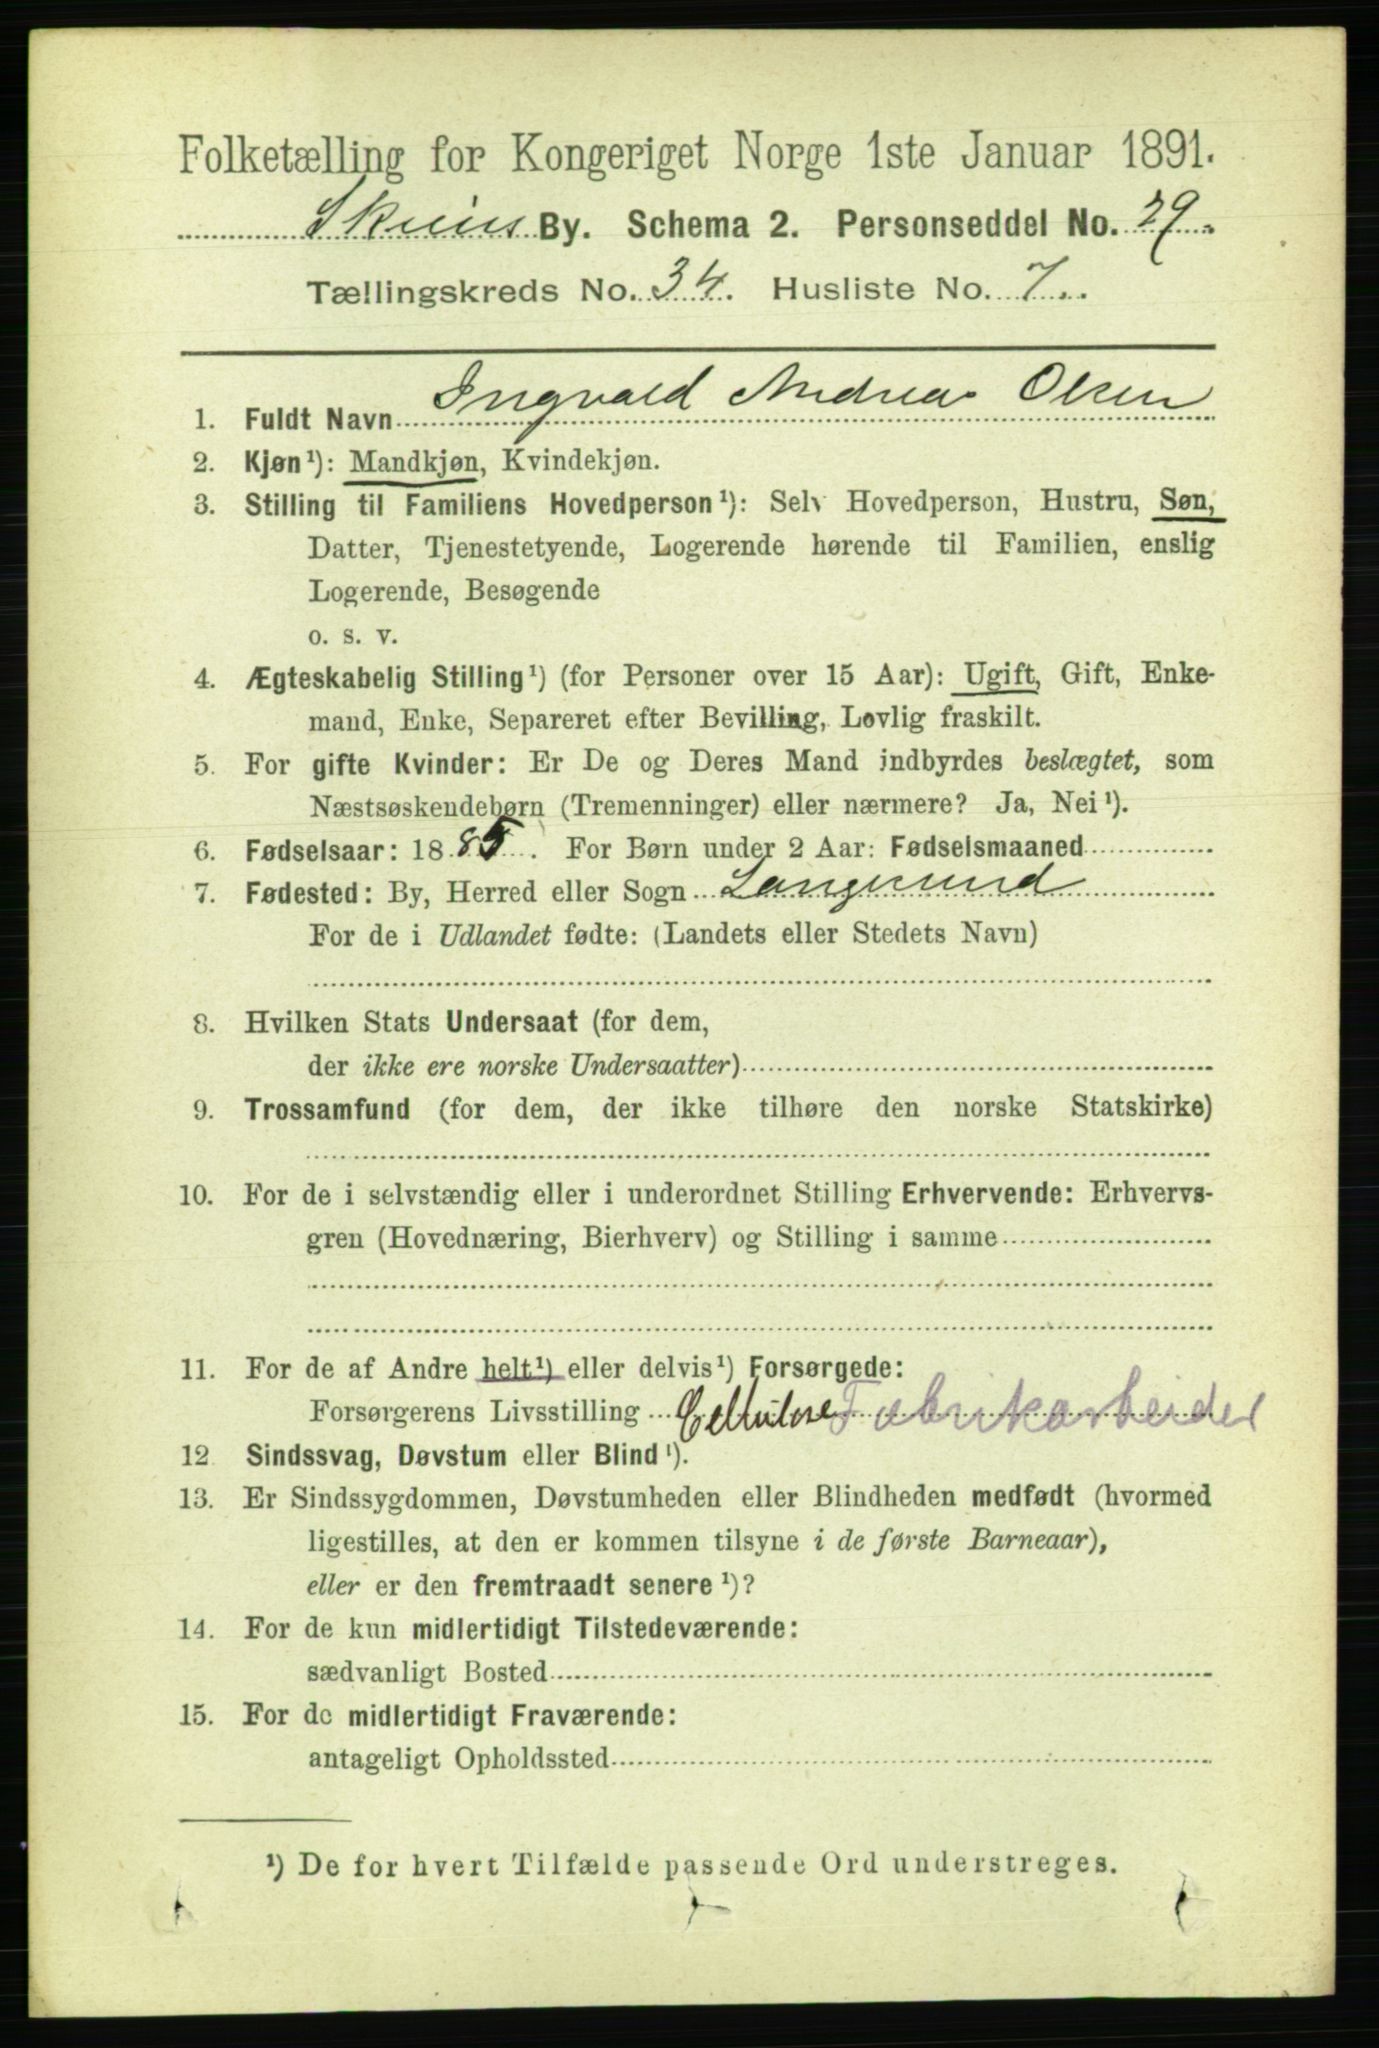 Folketælling for Kongeriget Norge 1ste Januar 1891.
Skiens By. Schema 2. Personseddel No. 29.
Tællingskreds No. 34. Husliste No. 7.
1. Fuldt Navn Ingvald Andreas Olsen
2. Kjøn¹): Mandkjøn, Kvindekjøn.
3. Stilling til Familiens Hovedperson¹): Selv Hovedperson, Hustru, Søn,
Datter, Tjenestetyende, Logerende hørende til Familien, enslig
Logerende, Besøgende
o. s. v.
4. Ægteskabelig Stilling¹) (for Personer over 15 Aar): Ugift, Gift, Enke-
mand, Enke, Separeret efter Bevilling, Lovlig fraskilt.
5. For gifte Kvinder: Er De og Deres Mand indbyrdes beslægtet, som
Næstsøskendebørn (Tremenninger) eller nærmere? Ja, Nei¹).
6. Fødselsaar: 1885. For Børn under 2 Aar: Fødselsmaaned
7. Fødested: By, Herred eller Sogn Langesund
For de i Udlandet fødte: (Landets eller Stedets Navn)
8. Hvilken Stats Undersaat (for dem,
der ikke ere norske Undersaatter)
9. Trossamfund (for dem, der ikke tilhøre den norske Statskirke)
10. For de i selvstændig eller i underordnet Stilling Erhvervende: Erhvervs-
gren (Hovednæring, Bierhverv) og Stilling i samme
11. For de af Andre helt¹) eller delvis¹) Forsørgede:
Forsørgerens Livsstilling Cellulose Fabrikarbeider
12 Sindssvag, Døvstum eller Blind¹).
13. Er Sindssygdommen, Døvstumheden eller Blindheden medfødt (hvormed
ligestilles, at den er kommen tilsyne i de første Barneaar),
eller er den fremtraadt senere¹)?
14. For de kun midlertidigt Tilstedeværende:
sædvanligt Bosted
15. For de midlertidigt Fraværende:
antageligt Opholdssted
¹) De for hvert Tilfælde passende Ord understreges.